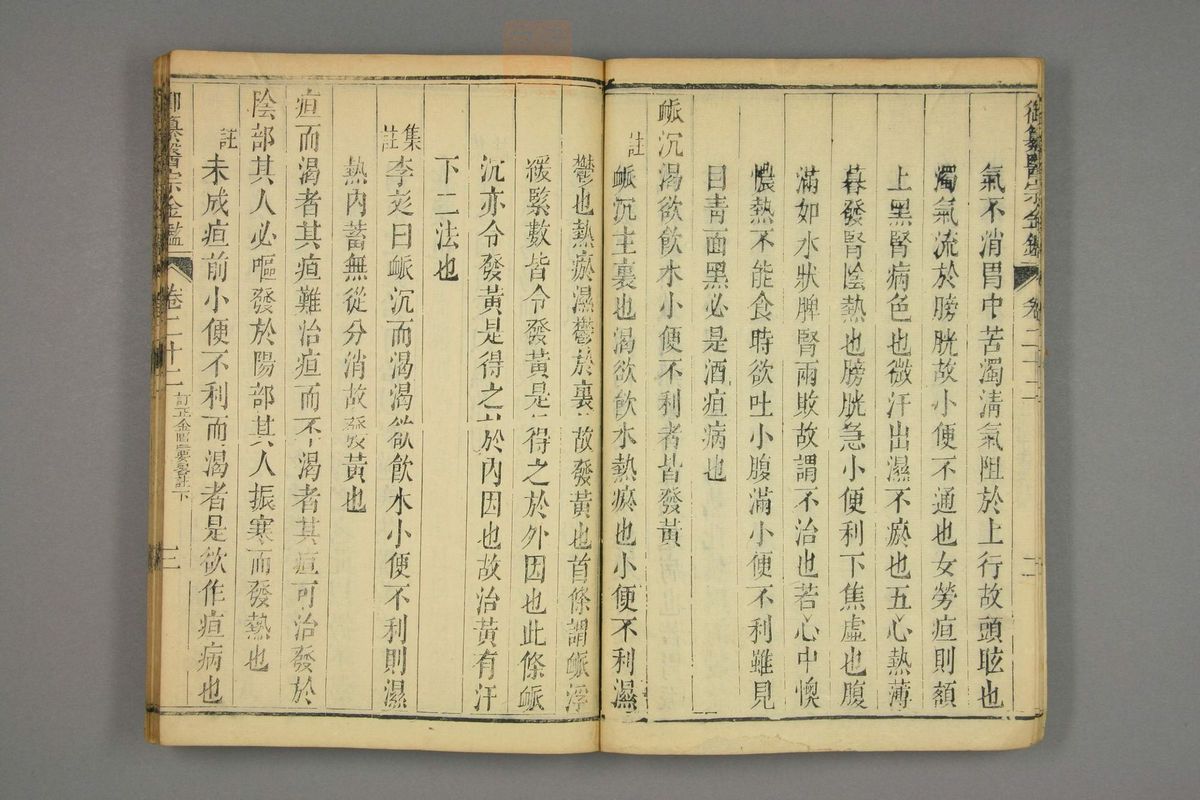 御纂醫宗金鑑 卷二十二 二
氣不消胃中苦濁淸氣阻於上行故頭眩也
濁氣流於膀胱故小便不通也女勞疸則額
上黑腎病色也微汗出濕不瘀也五心熱薄
暮發腎陰熱也膀胱急小便利下焦虛也腹
滿如水狀脾腎兩敗故謂不治也若心中懊
憹熱不能食時欲吐小腹滿小便不利雖見
目靑面黑必是酒疸病也
脈沉渴欲飮水小便不利者皆發黃
註 脈沉主裏也渴欲飮水熱瘀也小便不利濕
鬱也熱瘀濕鬱於裏故發黃也首條謂脈浮
緩緊數皆令發黃是得之於外因也此條脈
沉亦令發黃是得之於內因也故治黃有汗
下二法也
集註 李彣曰脈沉而渴渴欲飮水小便不利則濕
熱內蓄無從分消故發黃也
疸而渴者其疸難治疸而不渴者其疸可治發於
陰部其人必嘔發於陽部其人振寒而發熱也
註 未成疸前小便不利而渴者是欲作疸病也
御纂醫宗金鑑 卷二十二 訂正金匱要畧註下 三